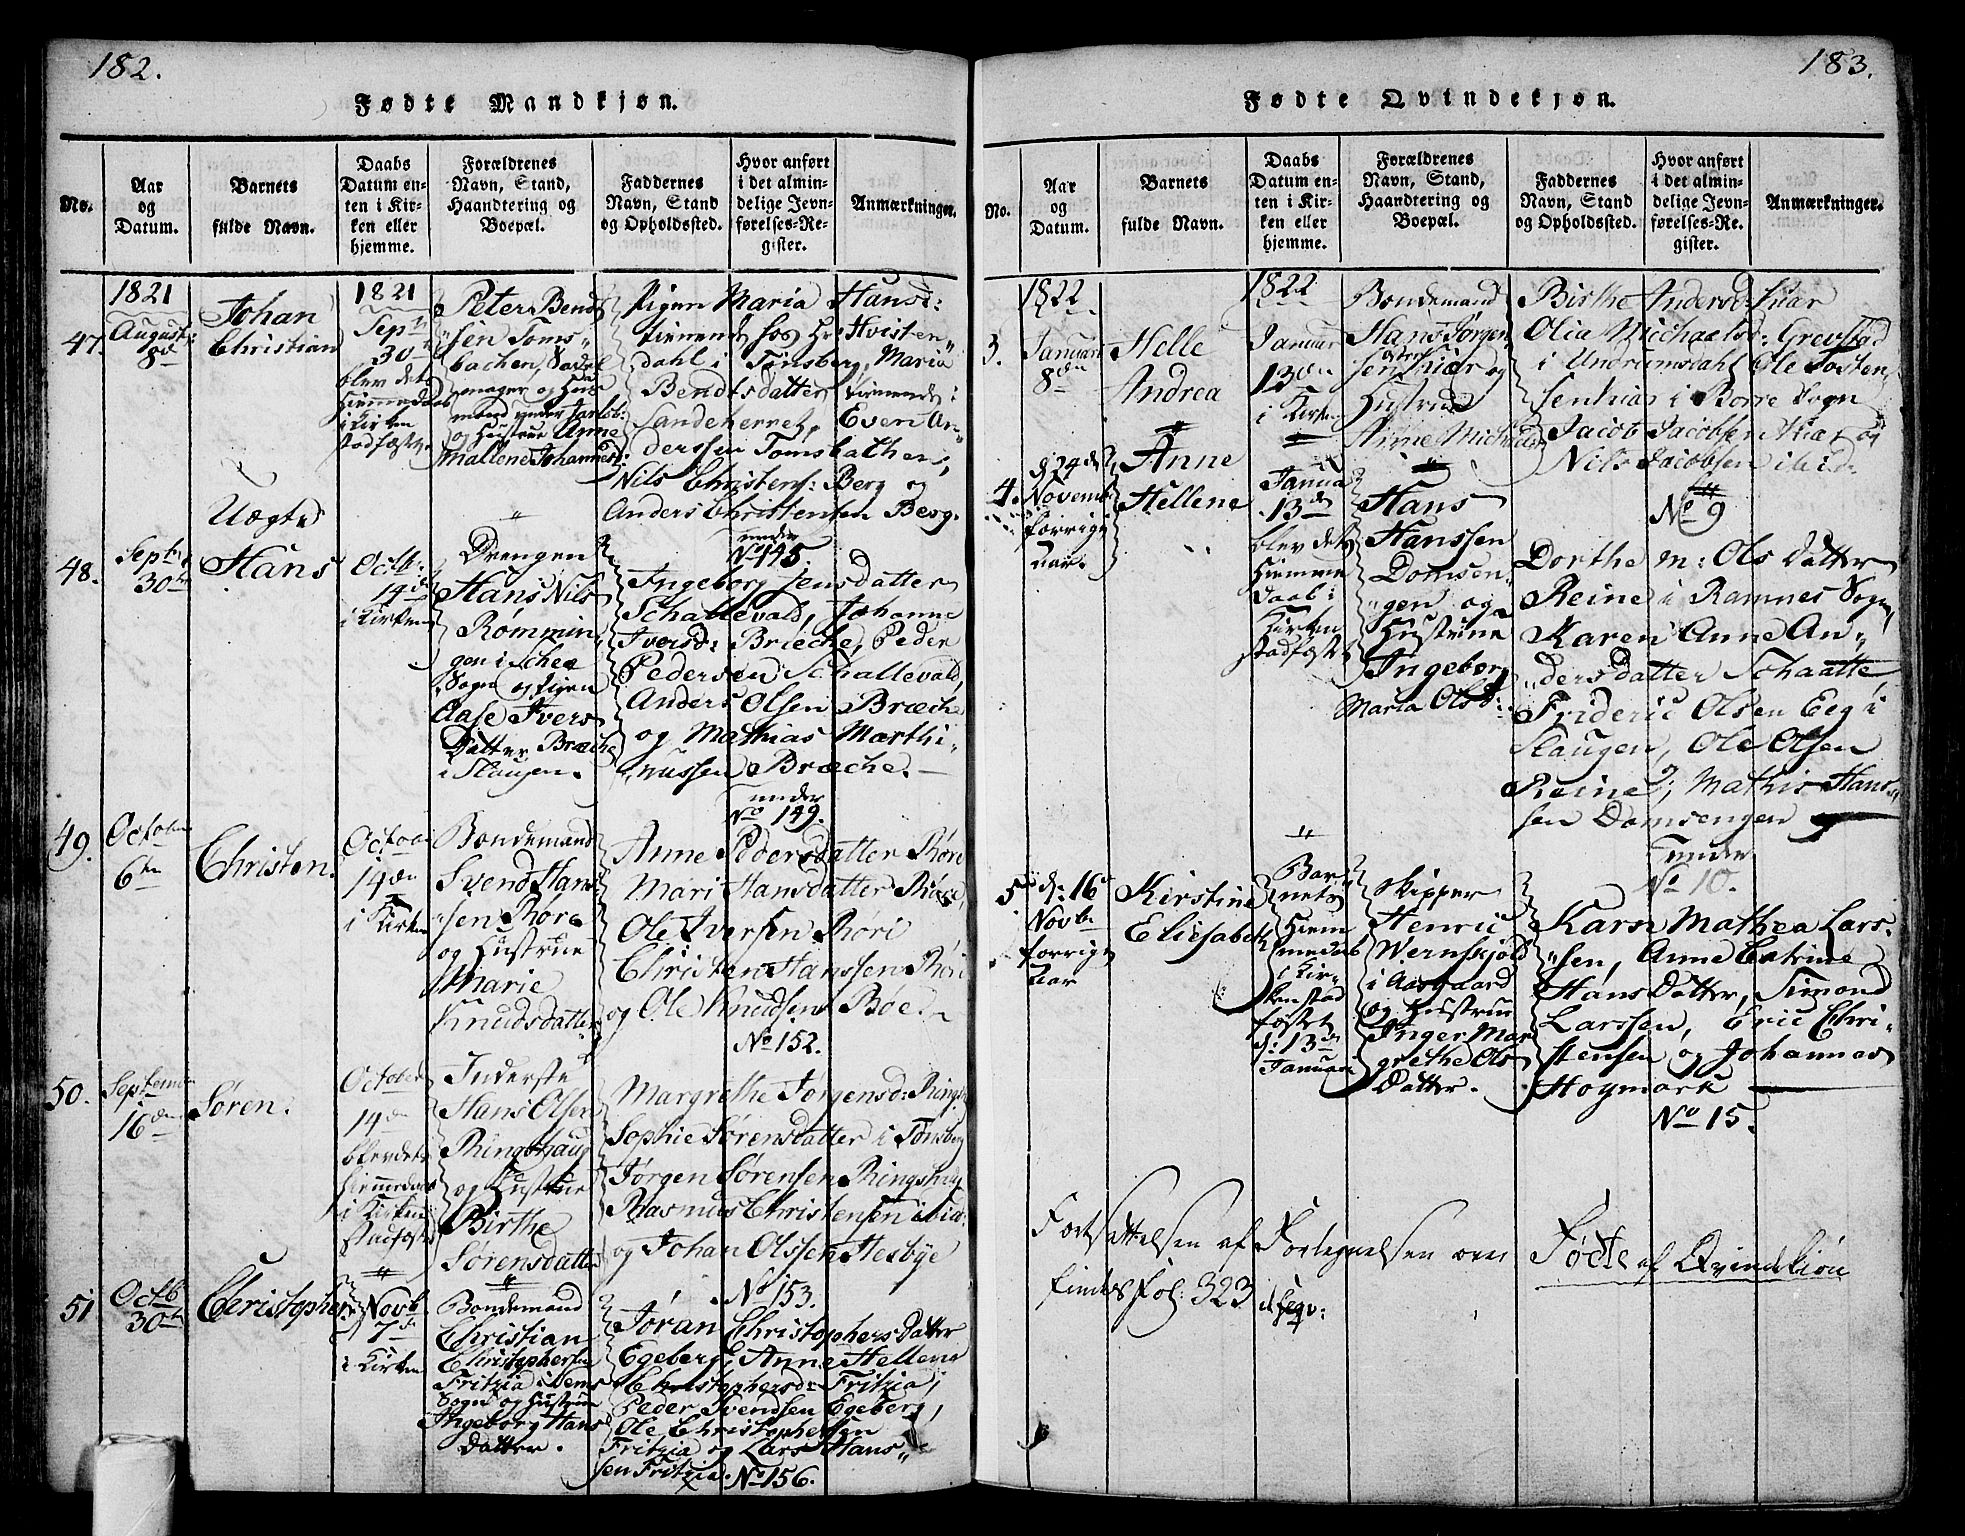 182.
Fødte Mandkjøn.
No.
Aar
og
Datum.
Barnets
fulde Navn.
Daabs
Datum en-
ten i Kir-
ken eller
hjemme.
Forældrenes
Navn, Stand,
Haandtering og
Boepæl.
Faddernes
Navn, Stand
og Opholdssted.
Hvor anført
i det almin-
delige Jevn-
førelses-Re-
gister.
Anmærkninger.
47.
1821
August
8de
Johan
Christian
1821
Septr
30te
blev dets
Hiemmedaab
i Kirken
stadfæstet
Peter Bend
sen Toms-
bachen,
og Hustrue Anne
Mallene Johannesd:
Pigen Maria Hansd:
tienende hos Hr Hvisten-
dahl i Tønsberg, Maria
Bendtsdatter tienende i
Sandeherret, Even An-
derssen Tomsbachen,
Nils Christens: Berg og
Anders Christensen Berg.
under
No 145
48.
Septr
30te
Uægte
Hans
Octb:
14de
i Kirken
Drengen
Hans Nils
Rømmin
gen i Schee
Sogn og Pigen
Aase Ivers
Datter Bræche
i Slaugen.
Ingeborg Jensdatter
Schallevald, Johanne
Iversd: Bræche, Peder
Pedersen Schallevald,
Anders Olsen Bræche
og Mathias Marthi-
nussen Bræche.
under
No 149.
49.
October
6te
Christen.
October
14de
i Kirken
Bondemand
Svend Han-
sen Røre
og Hustrue
Marie
Knudsdatter
Anne Pedersdatter Røre
Mari Hansdatter Røre,
Ole Iversen Røri
Christen Hanssen Røri
og Ole Knudsen Bøe
No 152.
50.
September
16de
Søren.
October
14de
blev dets
Hiemmedaab
i Kirken
stadfæstet
Inderste
Hans Olsen
Ringshaug
og Hustrue
Birthe
Sørensdatter
Margrethe Jørgensd: Ringsh
Sophie Sørensdatter i Tønsberg
Jørgen Sørensen Ringshaug
Rasmus Christensen ibid:
og Johan Olssen Hesbye
No 153.
51
Octb
30te
Christopher
Novb
7de
i Kirken
Bondemand
Christian
Christophersen
Fritzia i Sems
Sogn og Hustrue
Ingeborg Hans
Datter.
Jøran Christophers Datter
Egeberg, Anne Hellene
Christophersd: Fritzia,
Peder Svendsen Egeberg,
Ole Christophersen
Fritzia og Lars Hans-
sen Fritzia.
No 156.
183.
Fødte Qvindekjøn.
No.
Aar
og
Datum.
Barnets
fulde Navn.
Daabs
Datum en-
ten i Kir-
ken eller
hjemme.
Forældrenes
Navn, Stand,
Haandtering og
Boepæl.
Faddernes
Navn, Stand
og Opholdssted.
Hvor anført
i det almin-
delige Jevn-
førelses-Re-
gister.
Anmærkninger.
3.
1822
Januari
8de
Helle
Andrea
1822
Januar
13de
i Kirken
Bondemand
Hans Jørgen
sen Kiær og
Hustrue
Anne Michaelsd
Birthe Andersd: Kiær
Olia Michaelsd: Grevstad
i Undrumsdahl Ole Tosten-
sen Kiær i Borre Sogn
Jacob Jacobsen Kiær og
Nils Jacobsen ibid:
No 9
4.
d: 24de
Novemb
forrige
Aar.
Anne
Hellene
Janua
13de
blev dets
Hiemme
daab i
Kirken
stadfæstet
Hans
Hanssen
Domsen-
gen og
Hustrue
Ingeborg
Maria Olsd:
Dorthe m: Ols Datter
Reine i Ramnes Sogn,
Karen Anne An-
dersdatter Schaatte
Frideric Olsen Eeg i
Slaugen, Ole Olsen
Reine, Mathis Hans-
sen Domsengen
under
No 10.
5
d: 16de
Novbr
forrige
Aar
Kirstine
Eliesabeth
Bar-
nets
Hiem
medaab
i Kir-
ken stad
fæstet
d: 13de
Januari
Skipper
Henric
Wernskjold
i Aasgaard
og Hustrue
Inger Mar
grethe Ols
Datter.
Karen Mathea Lars-
sen, Anne Catrine
Hans Datter, Simond
Larssen, Eric Chri-
stensen og Johannes
Hogmark
No 15.
Fortsættelsen af Fortegnelsen over Fødte af Qvindekiøn
findes Fol: 323 et seqv: